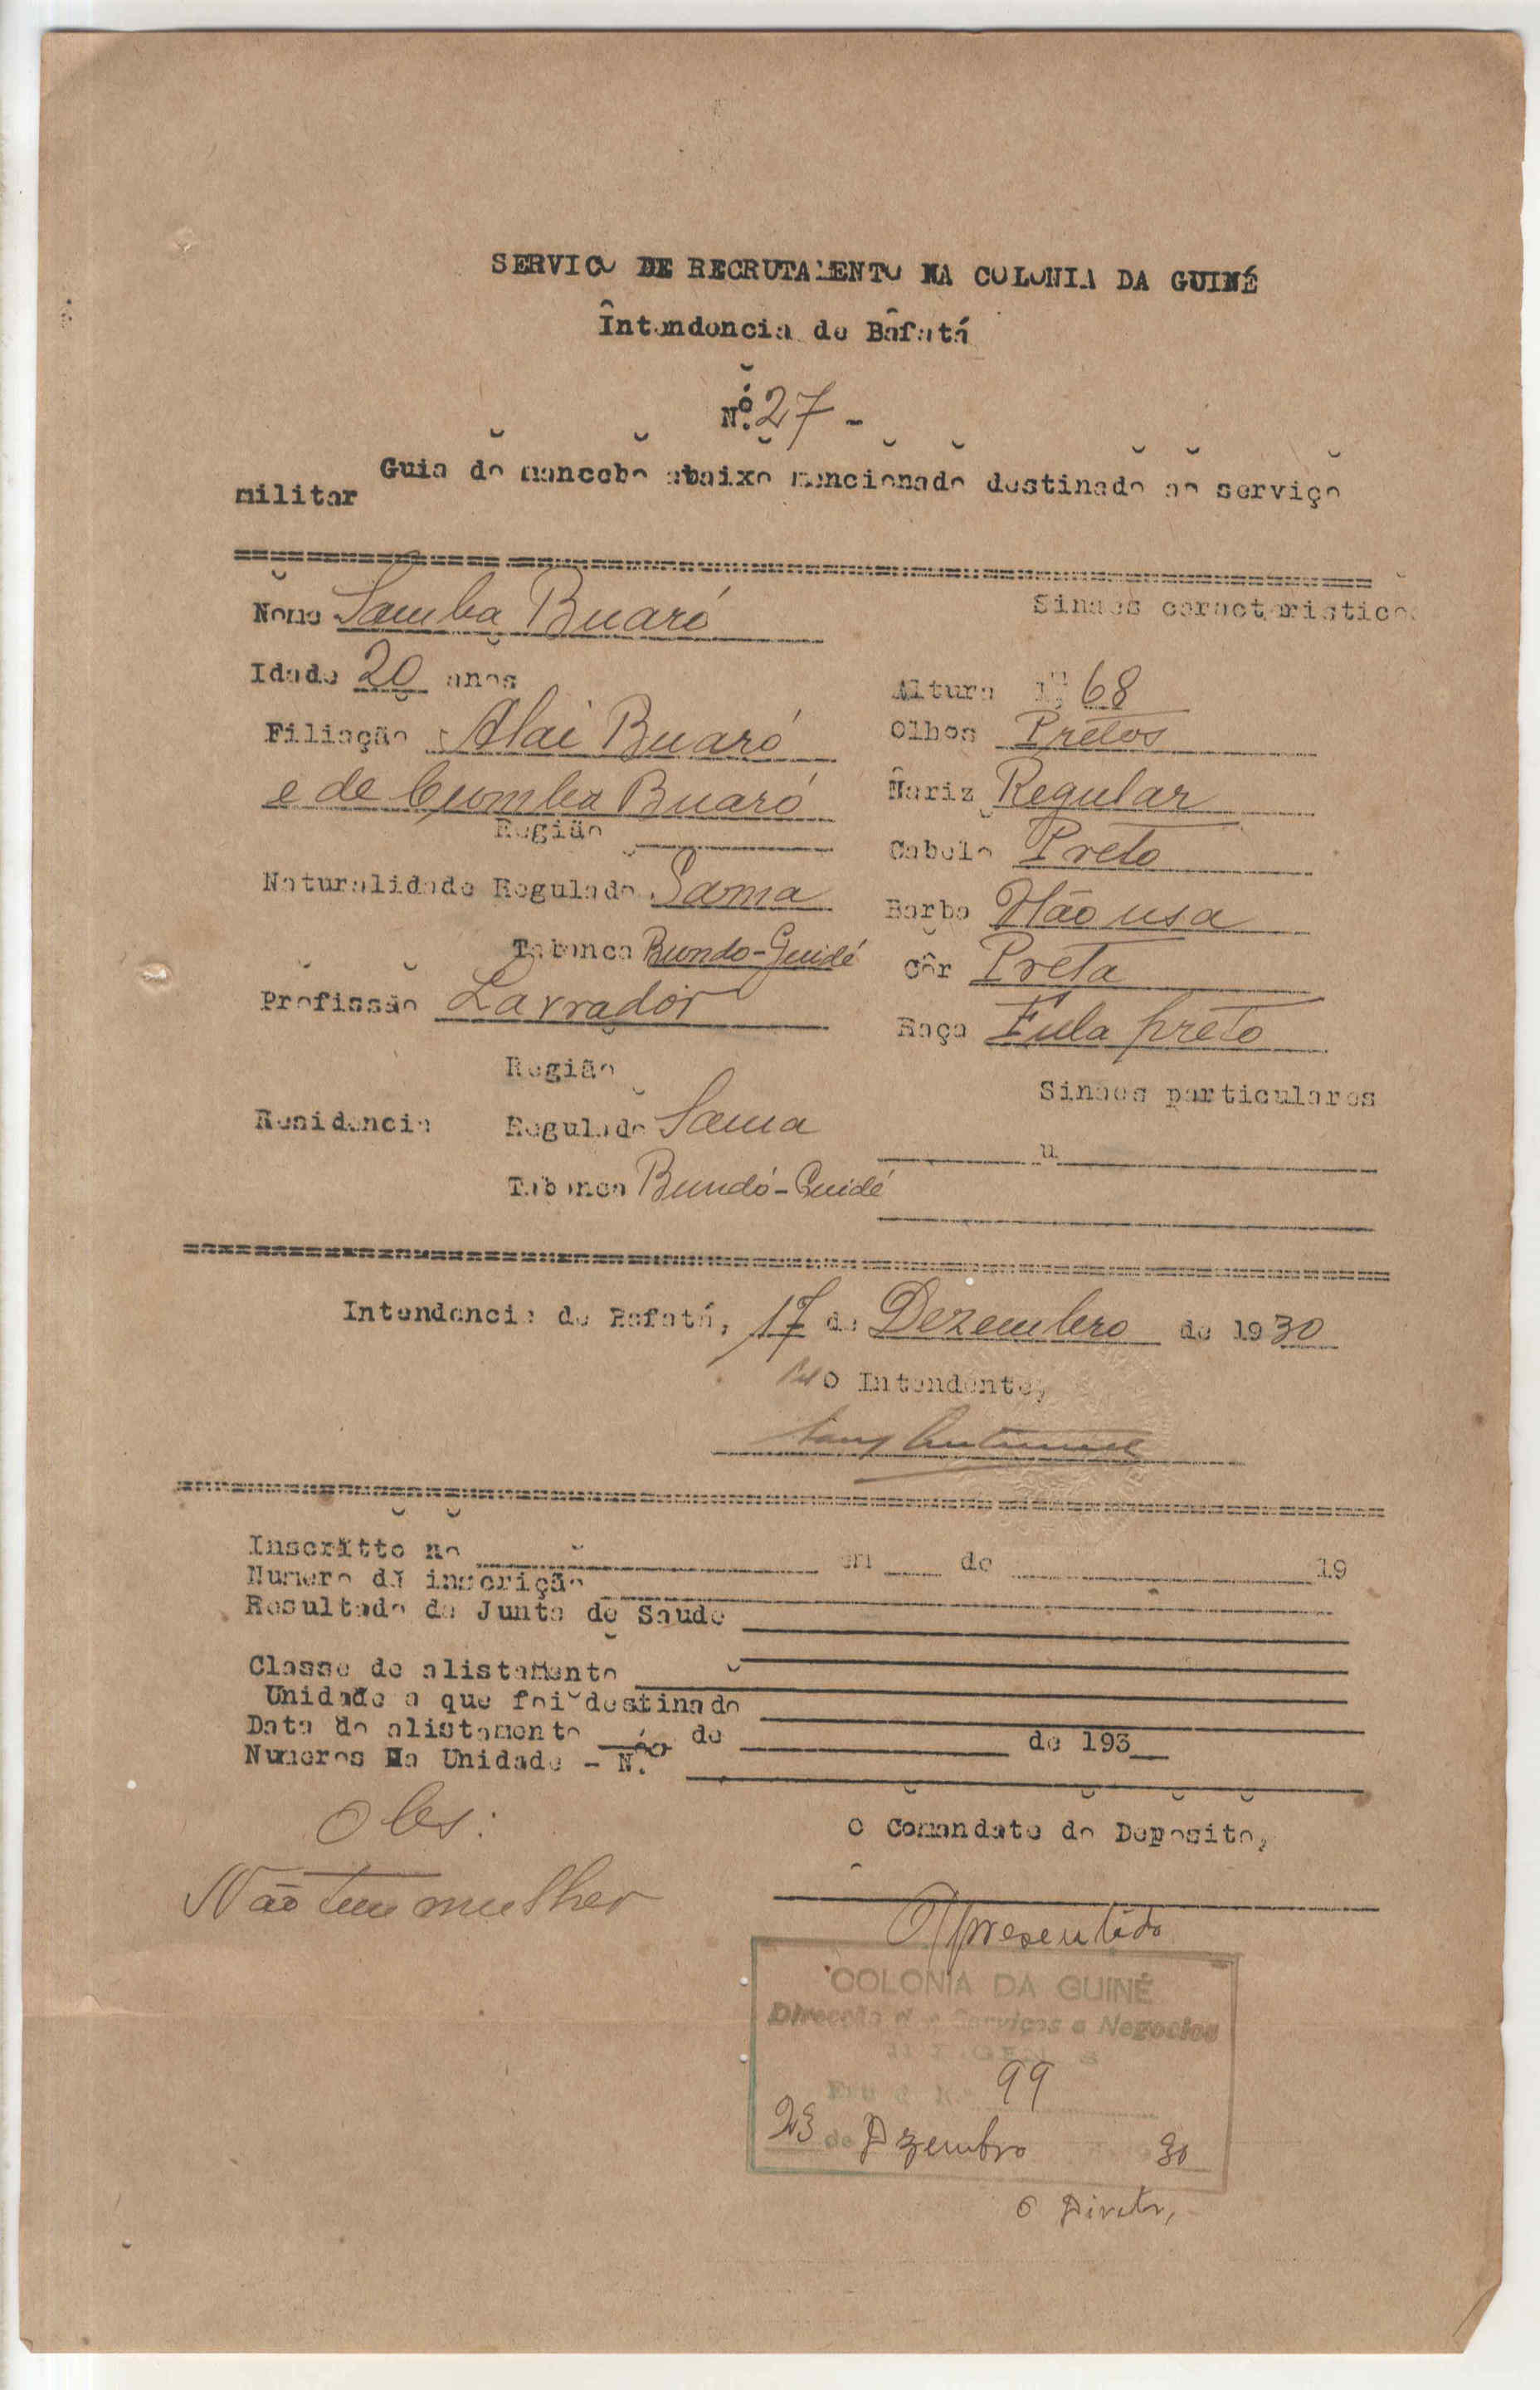 SERVICO DE RECRUTAMENTO NA COLONIA DA GUINÉ
Intendencia de Bafatá
Nº. 27 -
Guia do mancebo abaixo mencionado destinado ao serviço
militar
Nome Samba Buaró
Sinaes caracteristicos
Idade 20 anos
Altura 1m,68
Filiação Alai Buaró
Olhos Pretos
e de Cumba Buaró
Nariz Regular
Região
Cabelo Preto
Naturalidade Regulado Sama
Barba Não usa
Tabanca Bundo-Guidé
Côr Preta
Profissão Lavrador
Raça Fula preto
Região
Sinaes particulares
Residencia Regulado Sama
Tabanca Bundó-Guidé
Intendencia de Bafatá, 17 de Dezembro de 1930
O Intendente,
Inscritto no em de 19
Numero da inscrição
Resultado da Junta de Saude
Classe de alistamento
Unidade a que foi destinado
Data do alistamento de de 193
Numeros Na Unidade - N.º
Obs:
O Comandate do Deposito,
Não tem mulher
Apresentado
COLONIA DA GUINÉ
Direcção dos Serviços e Negocios
99
23 de Dzembro 30
O Diretor,